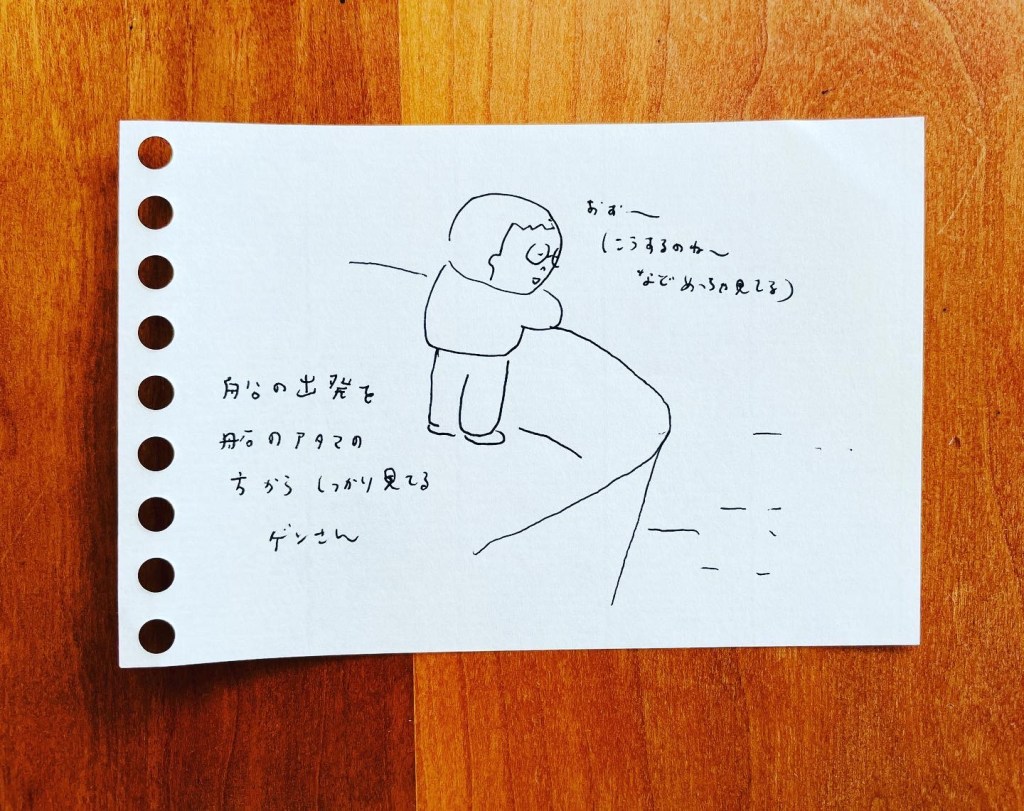 (こうするのね〜
などめっちゃ見てる)
船の出発を
船のアタマの
方から しっかり見てる
ゲンさん